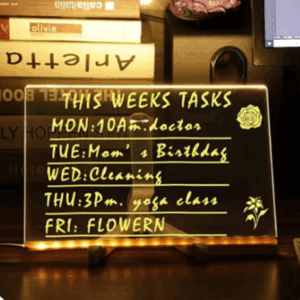 callaitalia
olivie
Arletta
THIS WEEKS TASKS
MON:10Am.doctor
TUE:Mom's Birthdag
WED:Cleaning
THU:3Pm. yoga class
FRI: FLOWERN